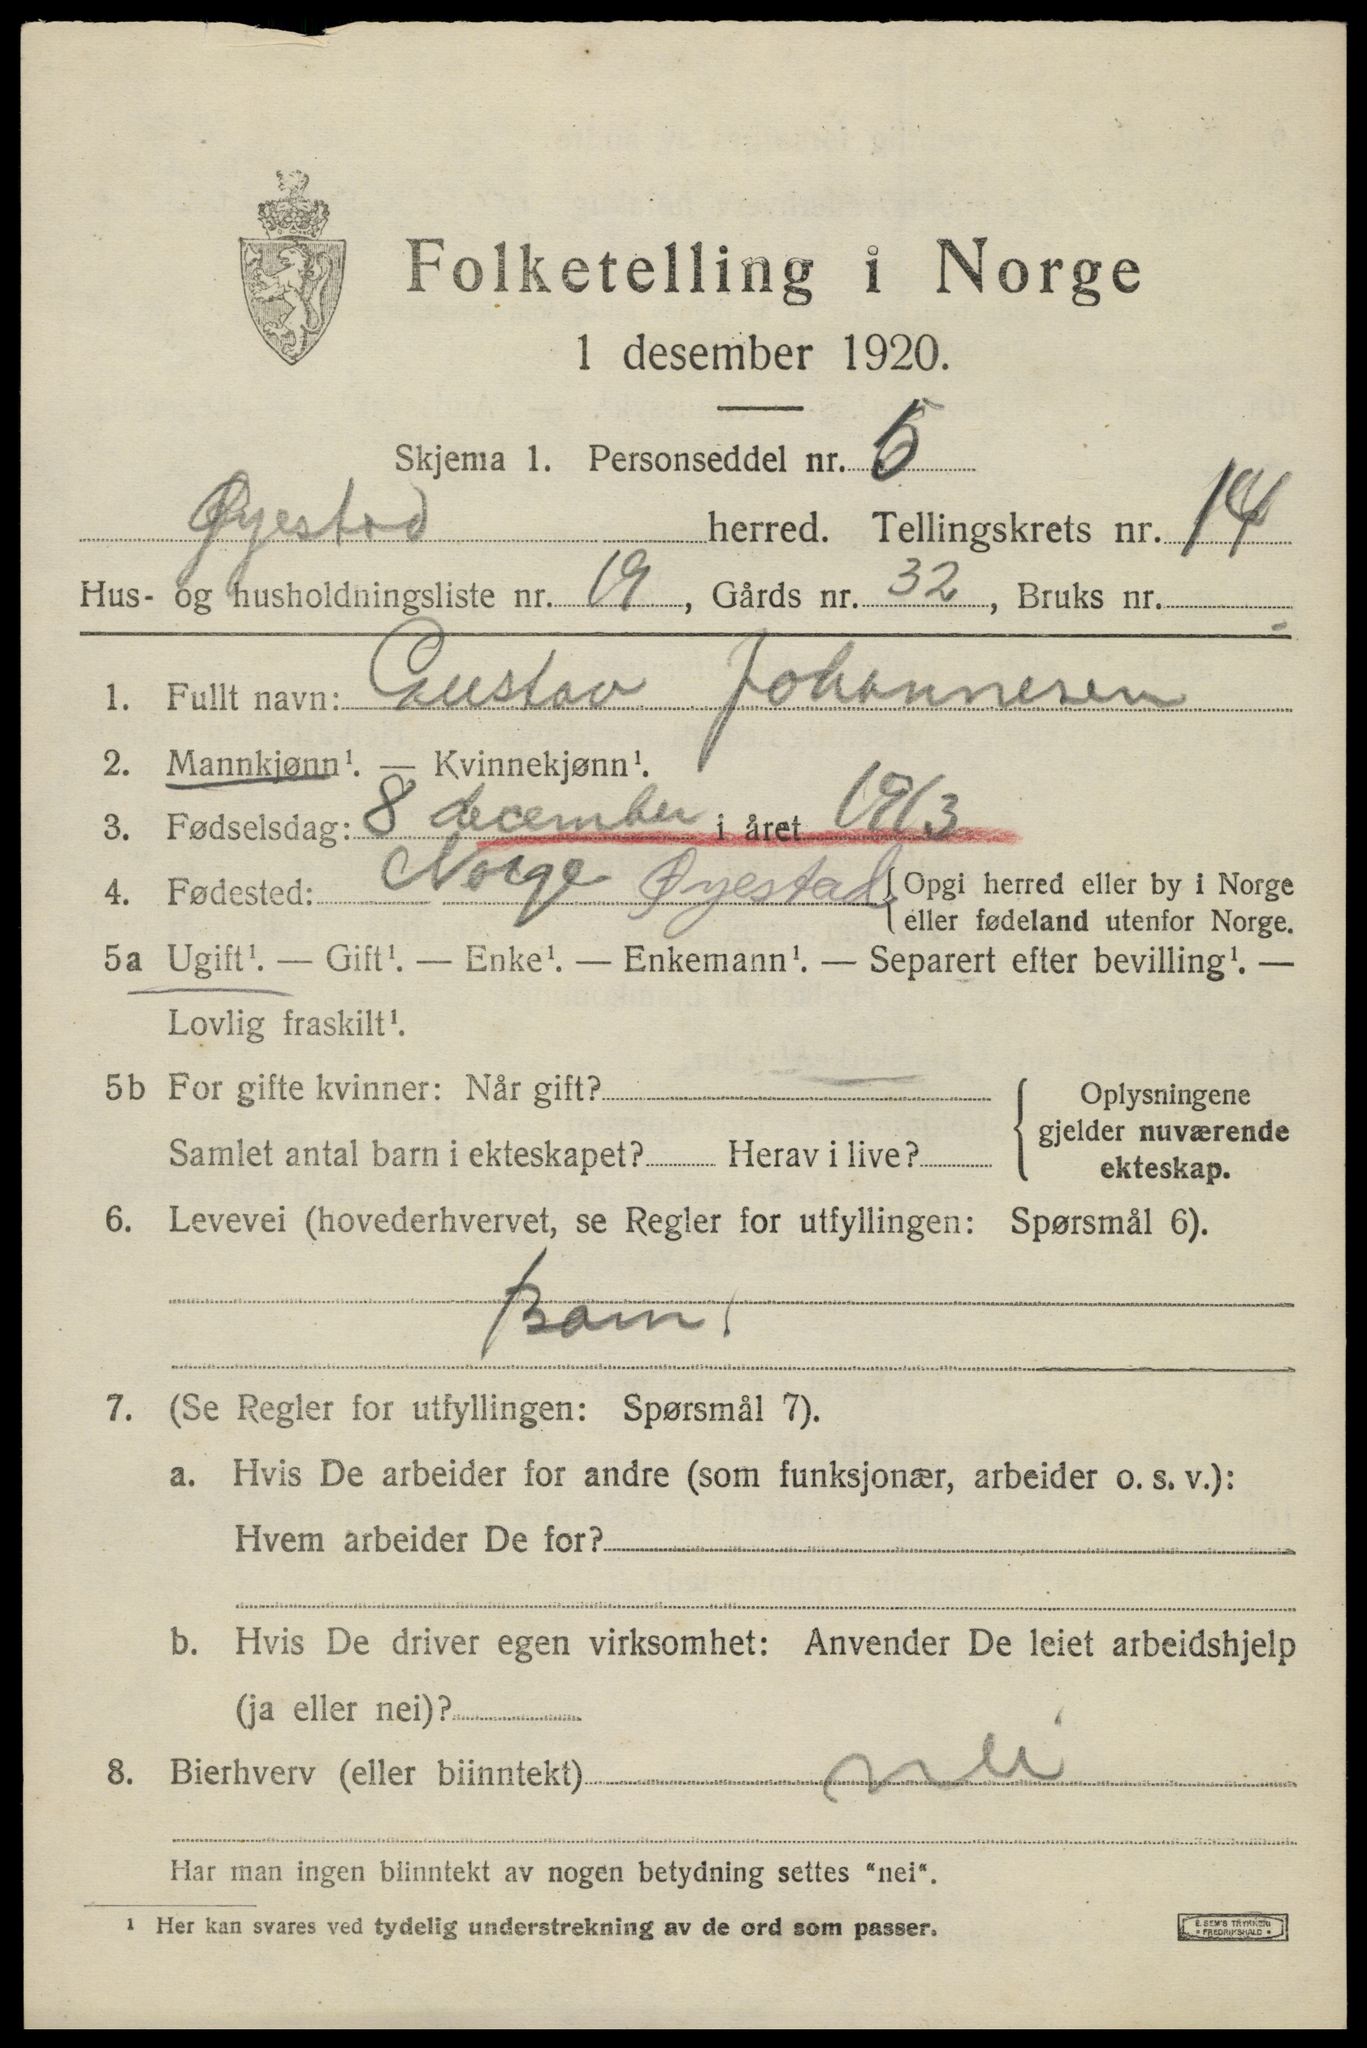 Folketelling i Norge
1 desember 1920.
Skjema 1. Personseddel nr. 5
Øyestad herred. Tellingskrets nr. 14
Hus- og husholdningsliste nr. 19, Gårds nr. 32, Bruks nr. -
1. Fullt navn: Gustav Johannesen
2. Mannkjønn¹. — Kvinnekjønn¹.
3. Fødselsdag: 8 december i året 1913
4. Fødested: Norge Øyestad { Opgi herred eller by i Norge
eller fødeland utenfor Norge.
5a Ugift¹. — Gift¹. — Enke¹. — Enkemann¹. — Separert efter bevilling¹. —
Lovlig fraskilt¹.
5b For gifte kvinner: Når gift? { Oplysningene
gjelder nuværende
Samlet antal barn i ekteskapet? Herav i live?
ekteskap.
6. Levevei (hovederhvervet, se Regler for utfyllingen: Spørsmål 6).
Barn.
7. (Se Regler for utfyllingen: Spørsmål 7).
a. Hvis De arbeider for andre (som funksjonær, arbeider o. s. v.):
Hvem arbeider De for?
b. Hvis De driver egen virksomhet: Anvender De leiet arbeidshjelp
(ja eller nei)?
8. Bierhverv (eller biinntekt) nei
Har man ingen biinntekt av nogen betydning settes "nei".
¹ Her kan svares ved tydelig understrekning av de ord som passer.
E. SEM'S TRYKKERI
• FREDRIKSHALD •